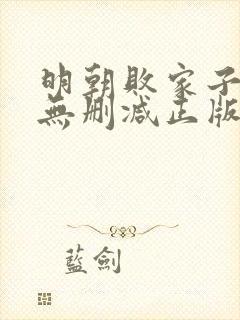 明朝敗家子
無刪减正版
藍劍